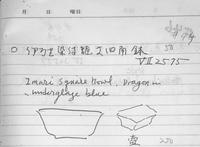 月 日 曜日
○ 伊万里染付龍文四角鉢
50
VIII 2575
Imari Square bowl, Dragon in
underglaze blue
250